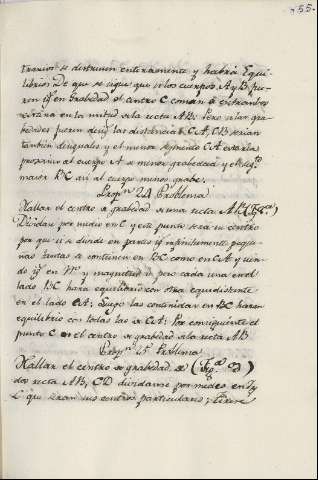 55.
trarios se destruien enteramente y habrá Equi-
librio: De que se sigue que si los cuerpos A y B fue-
ren ig.s en Grabedad el centro C comun á entrambos
estara en la mitad de la recta AB: Pero si las gra-
bedades fueren desig.s las distancias CA, CB serian
tambien desiguales y el menor segmento CA estaria
proximo al cuerpo A de mayor grabedad y el seg.to
maior BC así al cuerpo menos grabe.
Prop.n 24 Problema
Hallar el centro de grabedad de una recta AB (Fig.a)
Dividase por medio en C y este punto será su centro
por que si se divide en partes ig.s infinitamente peque-
ñas tantas se contienen en BC como en CA y sien-
do ig.s en N.o y magnitud cada una en el
lado BC hara equilibrio con otra equidistante
en el lado CA: Luego las contenidas en BC haran
equilibrio con todas las de CA: Por consiguiente el
punto C es el centro de grabedad de la recta AB
Prop.n 25 Problema
Hallar el centro de grabedad de (Fig.a)
dos recta AB, CD dividanse por medio en
que seran sus centros particulares;